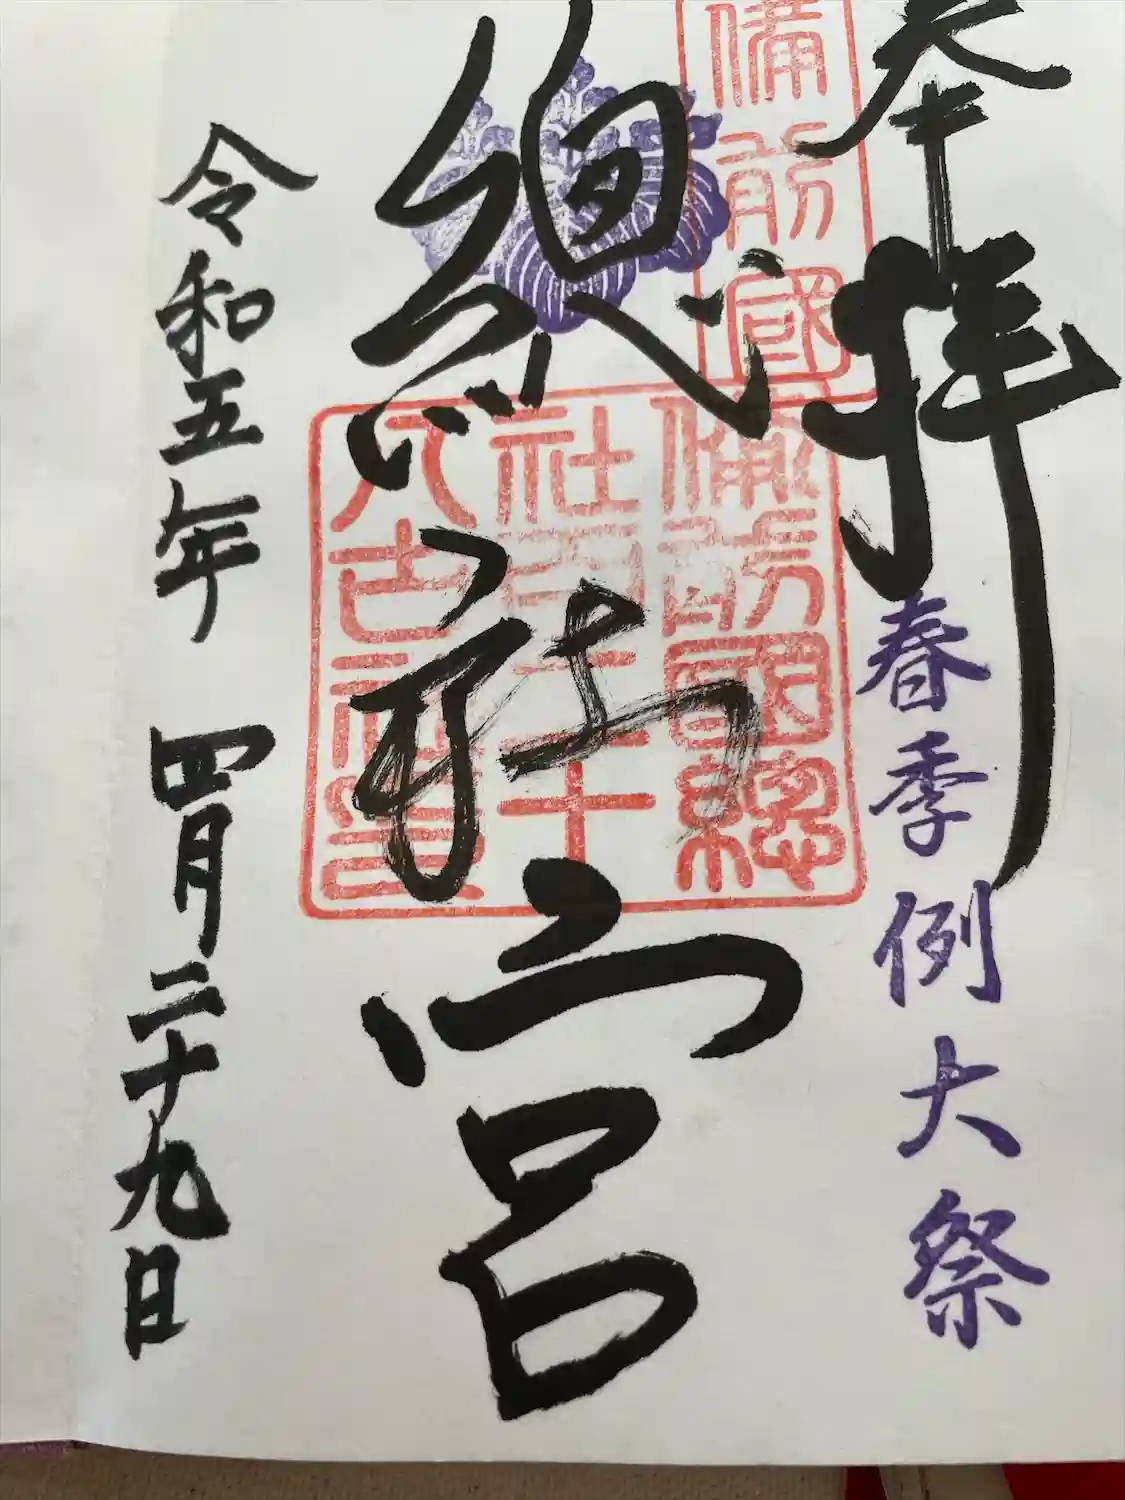 奉拝
備前國
春季例大祭
總社宮
備前國總
社百二十
八古神堂
令和五年 四月二十九日